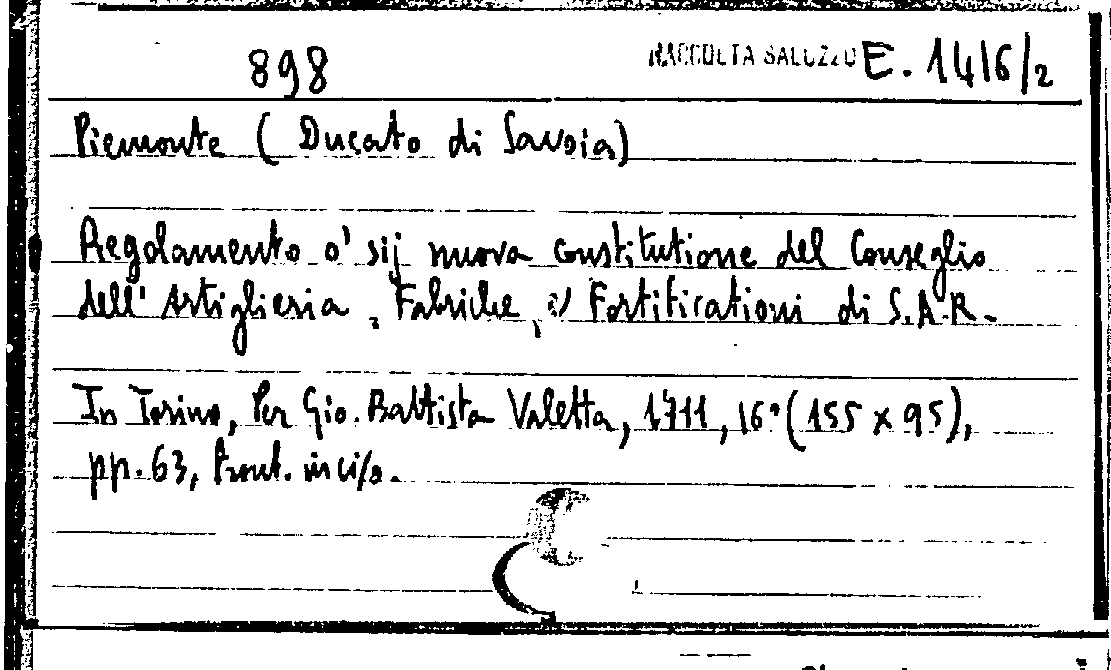 898 RACCOLTA SALUZZO E. 1416/2
Piemonte (Ducato di Savoia)
Regolamento o' sij nuova constitutione del Conseglio
dell' Artiglieria, Fabriche, Fortificationi di S.A.R.
In Torino, Per Gio. Battista Valetta, 1711, 16° (155 x 95),
pp. 63, front. inciso.